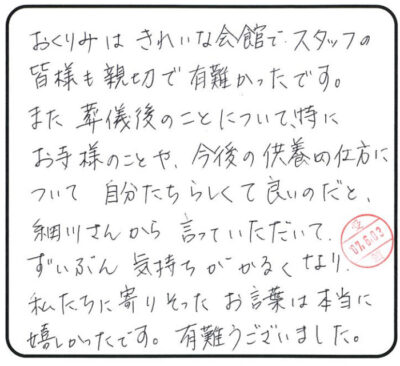 おくりみは きれいな会館で スタッフの
皆様も親切で有難かったです。
また 葬儀後のことについて、特に
お寺様のことや、今後の供養の仕方に
ついて 自分たちらしくて良いのだと、
細川さんから 言っていただいて、
ずいぶん 気持ちがかるくなり、
私たちに寄りそった お言葉は本当に
嬉しかったです。有難うございました。